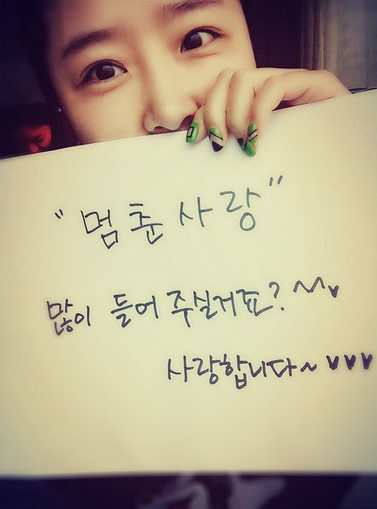 "멈춘사랑"
많이 들어 주실거죠?~^^♥
사랑합니다~♥♥♥